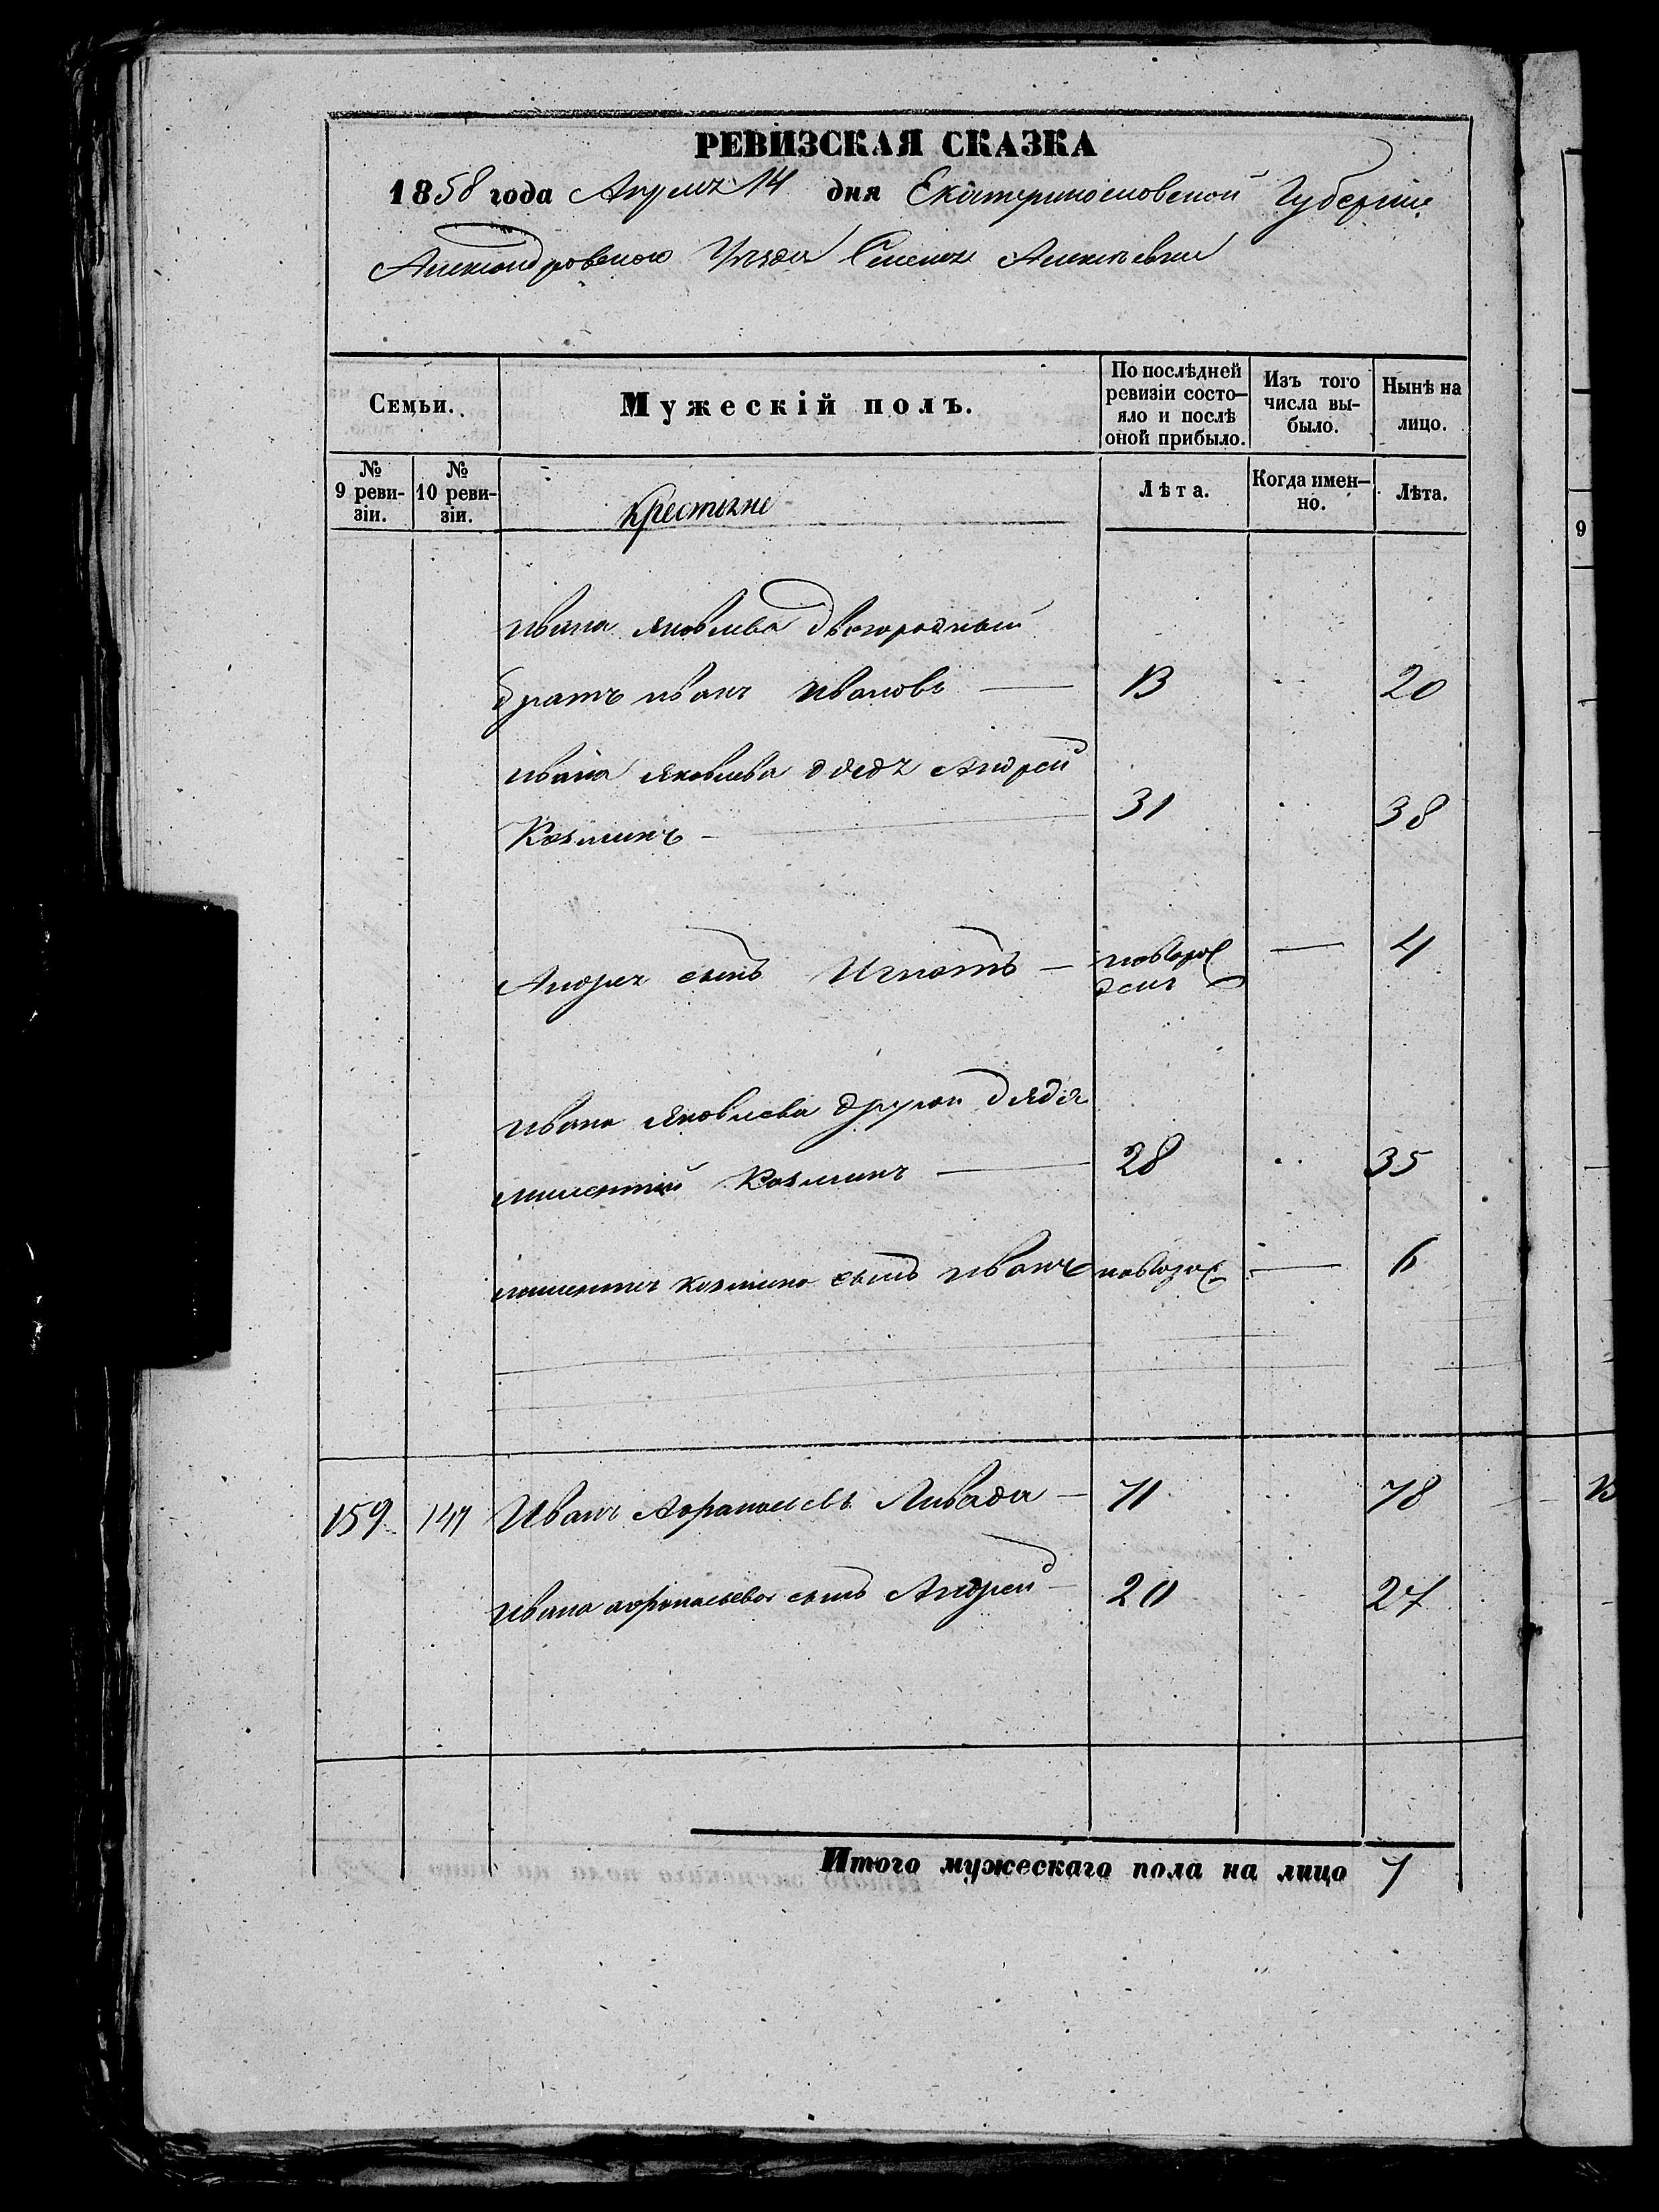 РЕВИЗСКАЯ СКАЗКА
1858 года Апреля 14 дня Екатеринославской Губернии
Александровского Уезда Селенія Алексѣевки
Семьи.
Мужескій полъ.
По послѣдней ревизіи состо-яло и послѣ оной прибыло.
Изъ того числа вы-было.
Нынѣ на лицо.
№ 9 реви-зіи.
№ 10 реви-зіи.
Крестьяне
Лѣта.
Когда имен-но.
Лѣта.
Ивана Яковлева двоюродный
братъ иванъ Ивановъ — 13 20
ивана Яковлева дядя Андрей
Козминъ — 31 38
Андрея сынъ Игнатъ — новорож
денъ — 4
Ивана Яковлева другой дядя
Козминъ — 28 35
козмина сынъ иванъ новорож — 6
159 147 Иванъ Афанасьевъ Ливада — 71 78
Ивана афанасьева сынъ Андрей — 20 27
Итого мужескаго пола на лицо 7
9